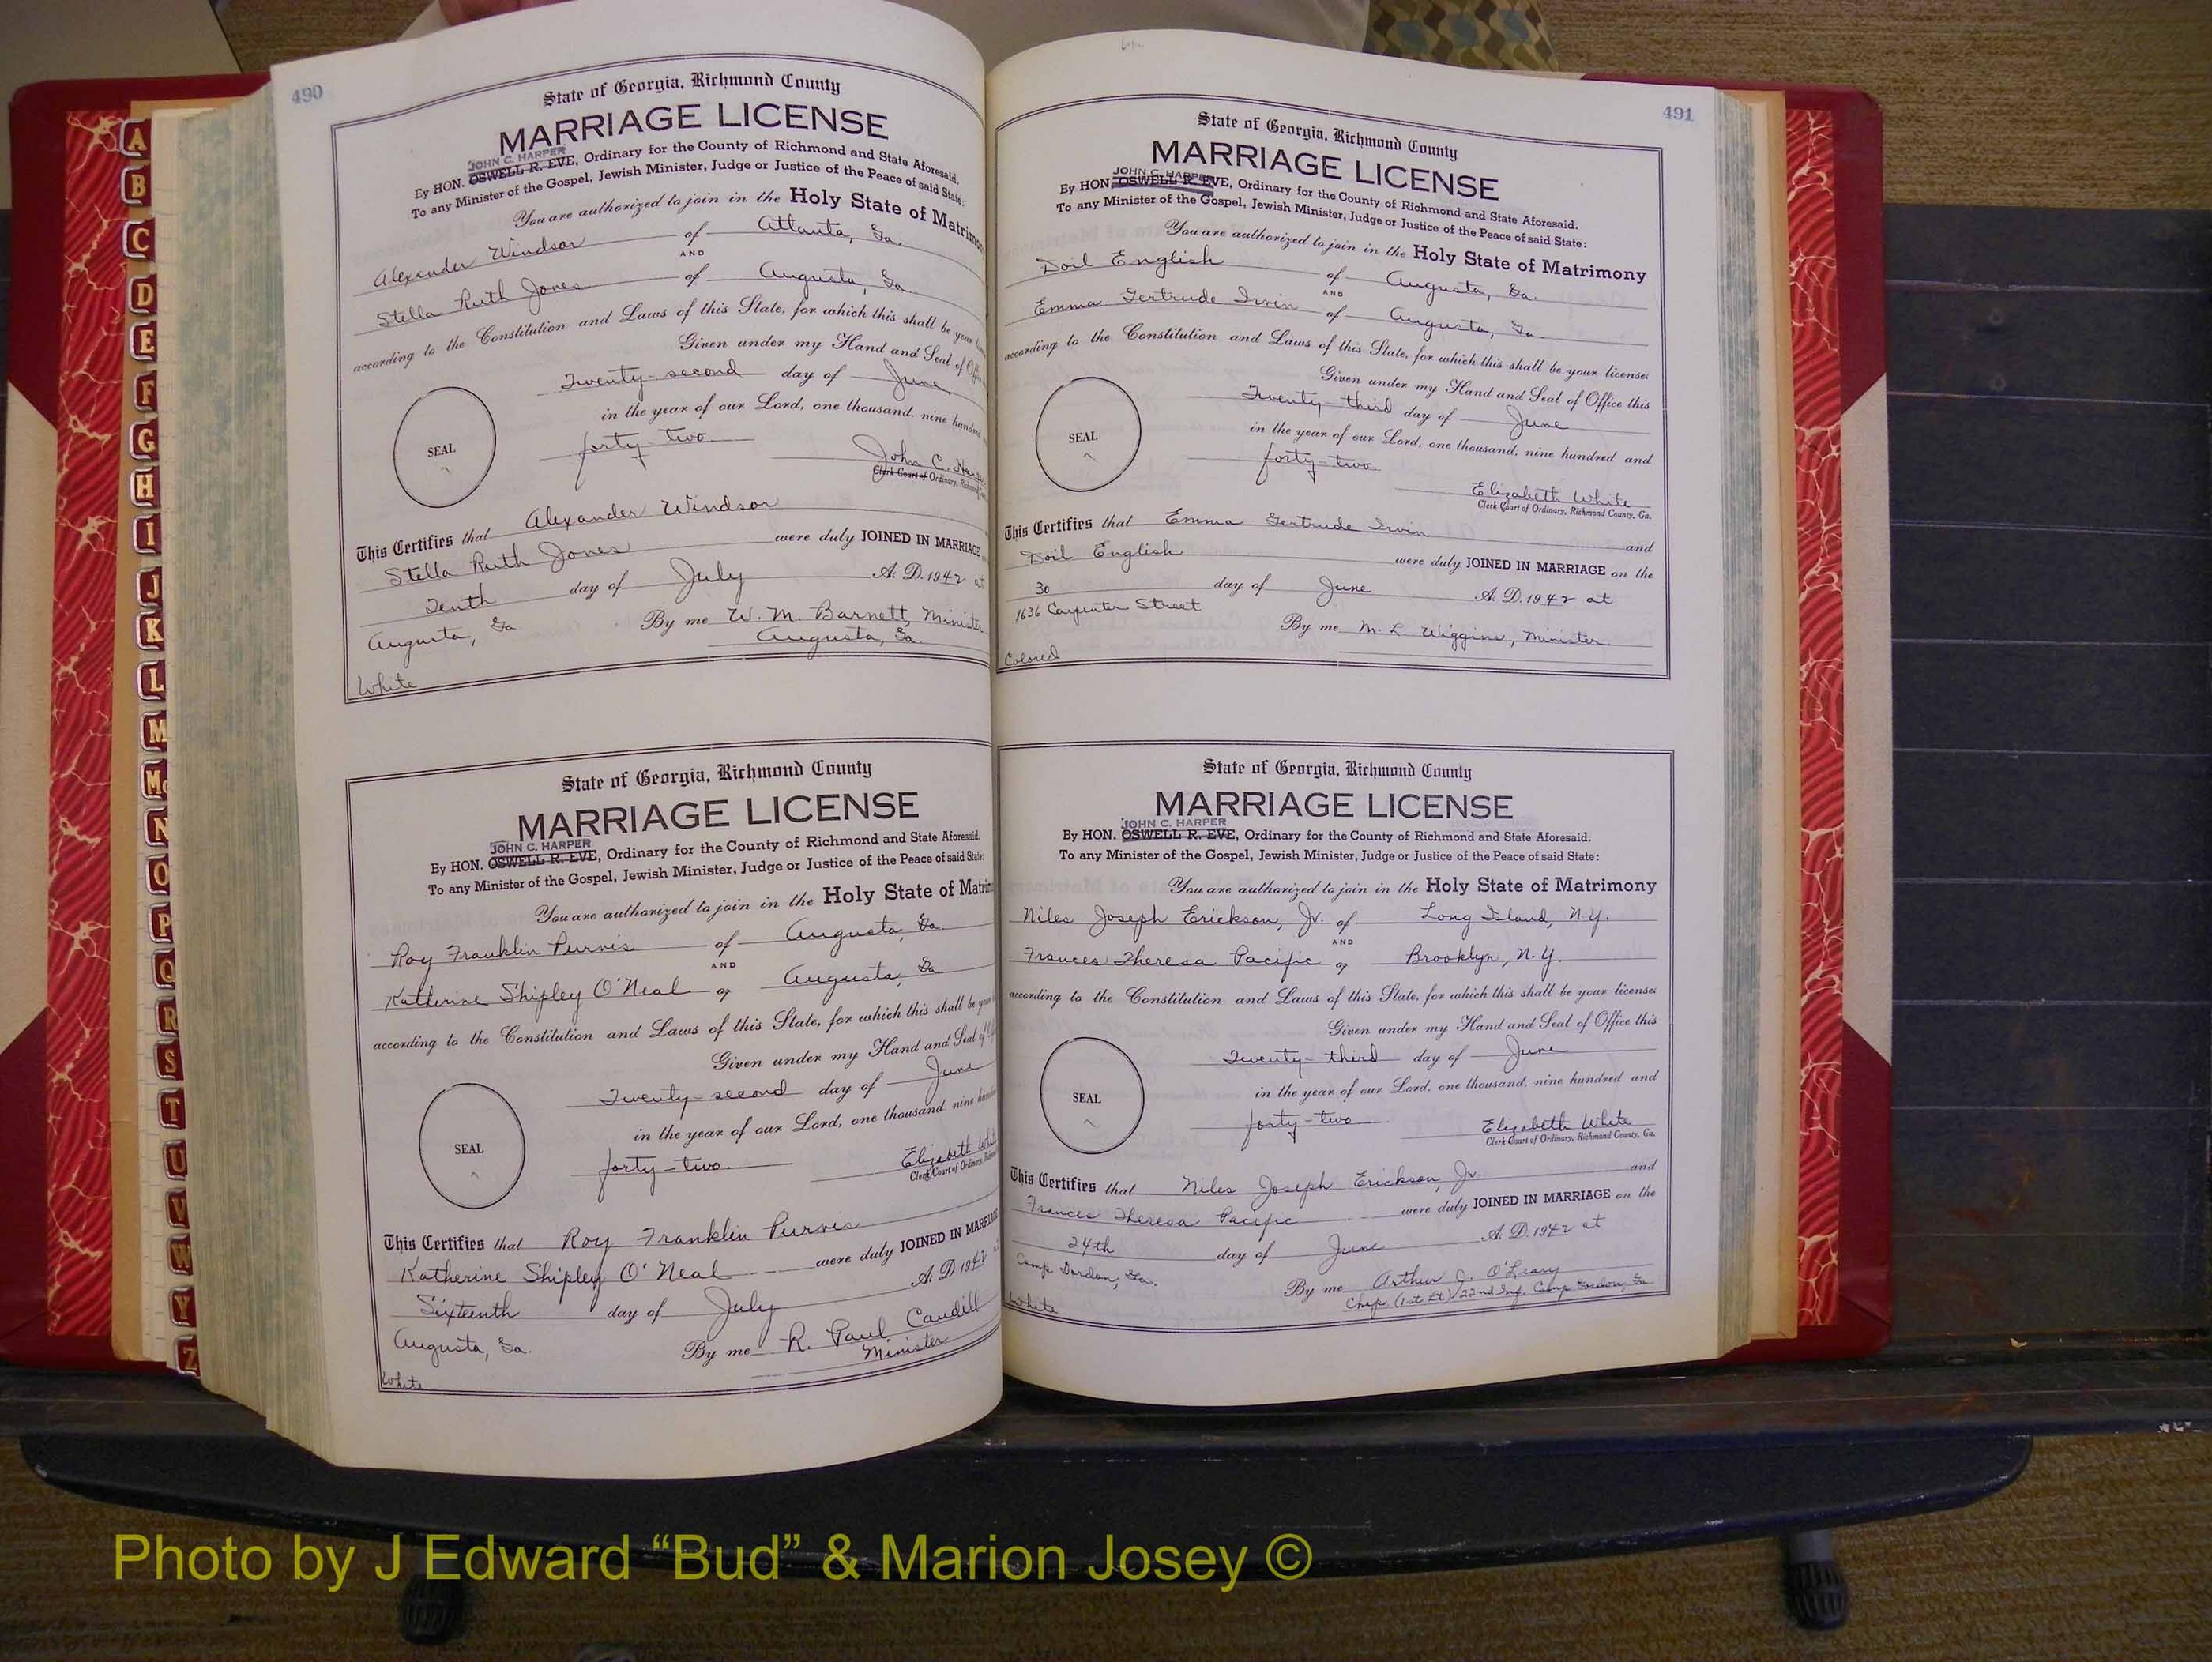 490
State of Georgia, Richmond County
MARRIAGE LICENSE
JOHN C. HARPER
By HON. OSWELL R. EVE, Ordinary for the County of Richmond and State Aforesaid.
To any Minister of the Gospel, Jewish Minister, Judge or Justice of the Peace of said State:
You are authorized to join in the Holy State of Matrimony
Alexander Windsor of Atlanta, Ga.
AND
Stella Ruth Jones of Augusta, Ga.
according to the Constitution and Laws of this State, for which this shall be your
Given under my Hand and Seal of
Twenty-second day of June
in the year of our Lord, one thousand, nine hundred
forty-two
SEAL
John C.
Clerk Court of Ordinary,
This Certifies that Alexander Windsor
Stella Ruth Jones were duly JOINED IN MARRIAGE
Tenth day of July A. D. 1942 at
Augusta, Ga By me W. M. Barnett, Minister
Augusta, Ga.
White
State of Georgia, Richmond County
MARRIAGE LICENSE
JOHN C. HARPER
By HON. OSWELL R. EVE, Ordinary for the County of Richmond and State Aforesaid.
To any Minister of the Gospel, Jewish Minister, Judge or Justice of the Peace of said State:
You are authorized to join in the Holy State of
Roy Franklin Purvis of Augusta, Ga.
AND
Katherine Shipley O'Neal of Augusta, Ga
according to the Constitution and Laws of this State, for which this shall be
Given under my Hand and Seal of
Twenty-second day of June
in the year of our Lord, one thousand nine
forty-two.
SEAL
Elizabeth
Clerk Court of Ordinary,
This Certifies that Roy Franklin Purvis
Katherine Shipley O'Neal were duly JOINED IN MARRIAGE
Sixteenth day of July A. D. 1942
Augusta, Ga. By me R. Paul Caudill
Minister
White
491
State of Georgia, Richmond County
MARRIAGE LICENSE
JOHN C. HARPER
By HON. OSWELL R. EVE, Ordinary for the County of Richmond and State Aforesaid.
To any Minister of the Gospel, Jewish Minister, Judge or Justice of the Peace of said State:
You are authorized to join in the Holy State of Matrimony
Doil English of Augusta, Ga.
AND
Emma Gertrude Irvin of Augusta, Ga.
according to the Constitution and Laws of this State, for which this shall be your license:
Given under my Hand and Seal of Office this
Twenty-third day of June
in the year of our Lord, one thousand, nine hundred and
forty-two.
SEAL
Elizabeth White
Clerk Court of Ordinary, Richmond County, Ga.
This Certifies that Emma Gertrude Irvin and
Doil English were duly JOINED IN MARRIAGE on the
30 day of June A. D. 1942 at
1636 Carpenter Street
By me M. L. Wiggins, Minister
Colored
State of Georgia, Richmond County
MARRIAGE LICENSE
JOHN C. HARPER
By HON. OSWELL R. EVE, Ordinary for the County of Richmond and State Aforesaid.
To any Minister of the Gospel, Jewish Minister, Judge or Justice of the Peace of said State:
You are authorized to join in the Holy State of Matrimony
Niles Joseph Erickson, Jr. of Long Island, N.Y.
AND
Frances Theresa Pacific of Brooklyn, N.Y.
according to the Constitution and Laws of this State, for which this shall be your license:
Given under my Hand and Seal of Office this
Twenty-third day of June
in the year of our Lord, one thousand, nine hundred and
forty-two
SEAL
Elizabeth White
Clerk Court of Ordinary, Richmond County, Ga.
This Certifies that Niles Joseph Erickson, Jr. and
Frances Theresa Pacific were duly JOINED IN MARRIAGE on the
24th day of June A. D. 1942 at
Camp Gordon, Ga.
By me Arthur J. O'Leary
Chap. (1st Lt) 22nd Inf. Camp Gordon, Ga
White
A
B
C
D
E
F
G
H
I
J
K
L
M
Mc
N
O
P
Q
R
S
T
U
V
W
Y
Z
Photo by J Edward “Bud” & Marion Josey ©